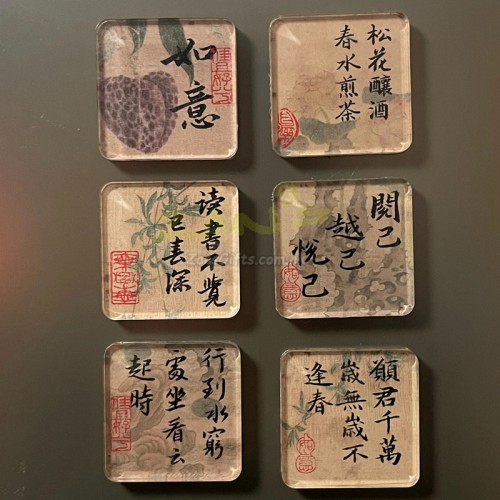 如意
松花釀酒
春水煎茶
读書不覺
已春深
閱己
越己
悦己
行到水窮
處坐看云
起時
願君千萬
歲無歲不
逢春